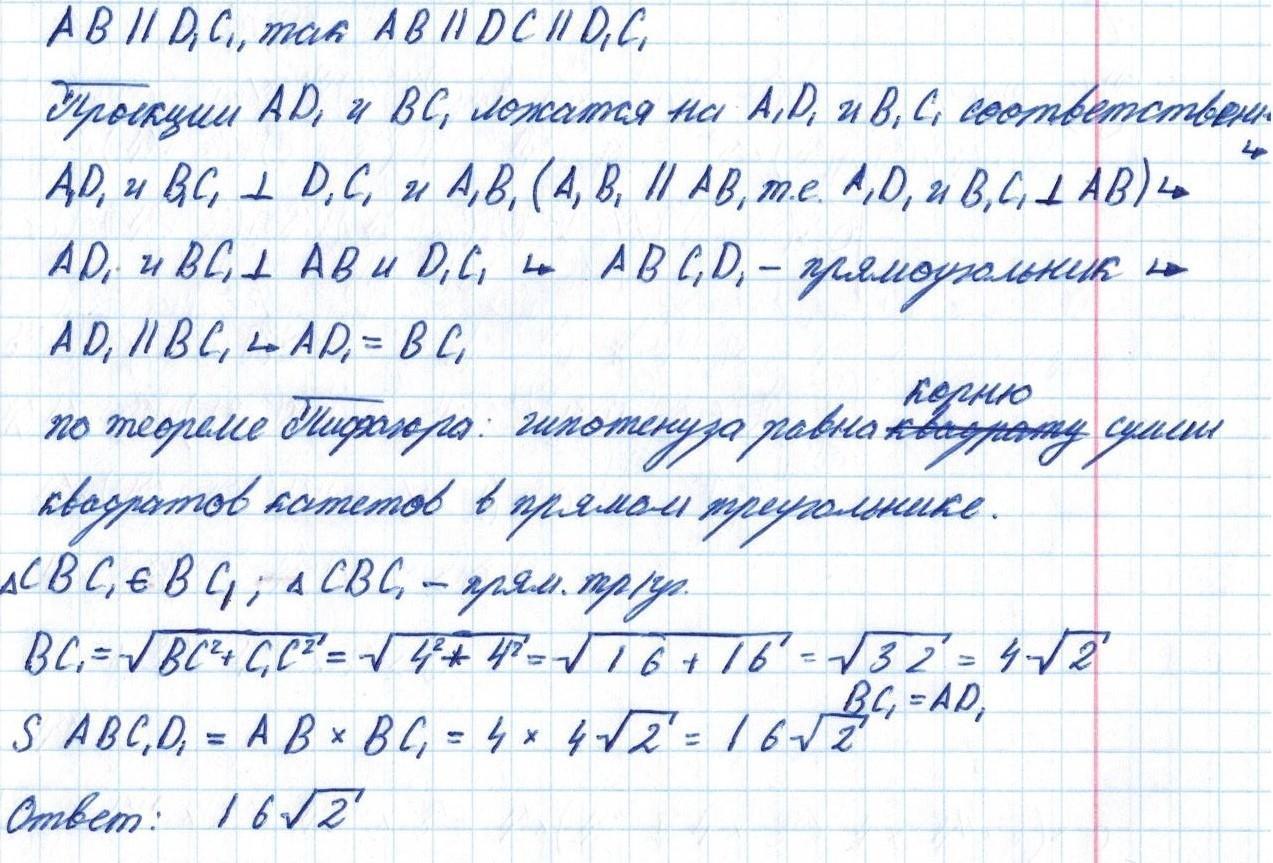 AB || D₁C₁, так AB || DC || D₁C₁
Проекции AD₁ и BC₁ ложатся на A₁D₁ и B₁C₁ соответственн. ↳
A₁D₁ и B₁C₁ ⊥ D₁C₁ и A₁B₁ (A₁B₁ || AB, т.е. A₁D₁ и B₁C₁ ⊥ AB) ↳
AD₁ и BC₁ ⊥ AB и D₁C₁ ↳ ABC₁D₁ – прямоугольник ↳
AD₁ || BC₁ ↳ AD₁ = BC₁
по теореме Пифагора: гипотенуза равна квадрату корню суммы
квадратов катетов в прямом треугольнике.
△CBC₁ ∈ BC₁; △CBC₁ – прям. тр/уг.
BC₁ = √BC²+C₁C² = √4²+4² = √16+16 = √32 = 4√2
BC₁ = AD₁
S ABC₁D₁ = AB × BC₁ = 4 × 4√2 = 16√2
Ответ: 16√2